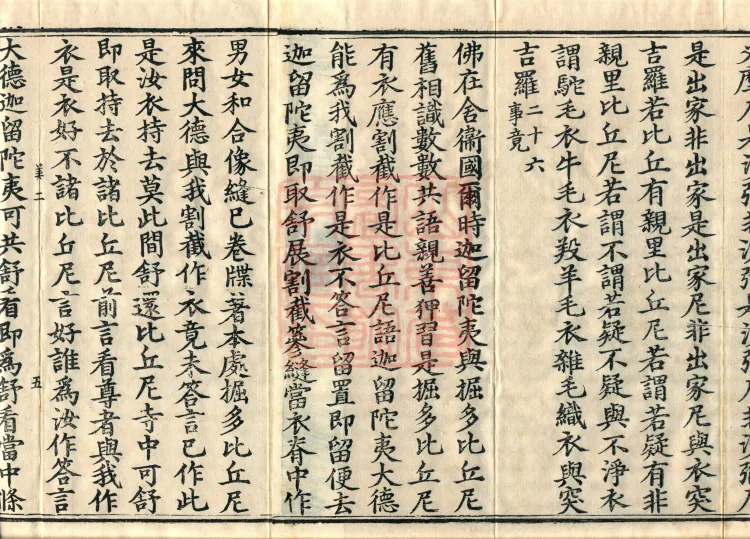 是出家非出家是出家尼非出家尼與衣突
吉羅若比丘有親里比丘尼若謂若疑有非
親里比丘尼若謂不謂若疑不疑與不淨衣
謂駝毛衣牛毛衣羖羊毛衣雜毛織衣與突
吉羅二十六事竟
佛在舍衞國爾時迦留陀夷與掘多比丘尼
舊相識數數共語親善狎習是掘多比丘尼
有衣應割截作是比丘尼語迦留陀夷大德
能爲我割截作是衣不答言留置即留便去
迦留陀夷即取舒展割截篸縫當衣脊中作
男女和合像縫已卷牒著本處掘多比丘尼
來問大德與我割截作衣竟未答言已作此
是汝衣持去莫此間舒還比丘尼寺中可舒
即取持去於諸比丘尼前言看尊者與我作
衣是衣好不諸比丘尼言好誰爲汝作答言
二 五
大德迦留陀夷可共舒看即爲舒看當中條